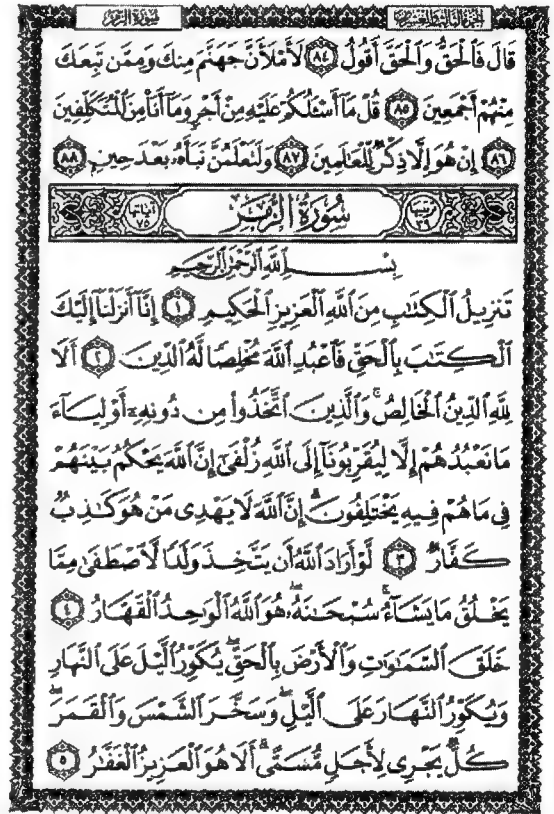 سورة الزمر الجزء الثالث والعشرون
قَالَ فَالْحَقُّ وَالْحَقَّ أَقُولُ ٨٤ لَأَمْلَأَنَّ جَهَنَّمَ مِنكَ وَمِمَّن تَبِعَكَ
مِنْهُمْ أَجْمَعِينَ ٨٥ قُلْ مَا أَسْـَٔلُكُمْ عَلَيْهِ مِنْ أَجْرٍ وَمَا أَنَا۠ مِنَ الْمُتَكَلِّفِينَ
٨٦ إِنْ هُوَ إِلَّا ذِكْرٌ لِّلْعَـٰلَمِينَ ٨٧ وَلَتَعْلَمُنَّ نَبَأَهُۥ بَعْدَ حِينٍ ٨٨
ترتيبها ٣٩ سُورَةُ الزُّمَرِ آياتها ٧٥
بِسْمِ اللَّهِ الرَّحْمَـٰنِ الرَّحِيمِ
تَنزِيلُ الْكِتَـٰبِ مِنَ اللَّهِ الْعَزِيزِ الْحَكِيمِ ١ إِنَّا أَنزَلْنَا إِلَيْكَ
الْكِتَـٰبَ بِالْحَقِّ فَاعْبُدِ اللَّهَ مُخْلِصًا لَّهُ الدِّينَ ٢ أَلَا
لِلَّهِ الدِّينُ الْخَالِصُ ۚ وَالَّذِينَ اتَّخَذُوا مِن دُونِهِۦ أَوْلِيَاءَ
مَا نَعْبُدُهُمْ إِلَّا لِيُقَرِّبُونَا إِلَى اللَّهِ زُلْفَىٰ إِنَّ اللَّهَ يَحْكُمُ بَيْنَهُمْ
فِي مَا هُمْ فِيهِ يَخْتَلِفُونَ ۗ إِنَّ اللَّهَ لَا يَهْدِى مَنْ هُوَ كَـٰذِبٌ
كَفَّارٌ ٣ لَّوْ أَرَادَ اللَّهُ أَن يَتَّخِذَ وَلَدًا لَّاصْطَفَىٰ مِمَّا
يَخْلُقُ مَا يَشَاءُ ۚ سُبْحَـٰنَهُۥ ۖ هُوَ اللَّهُ الْوَٰحِدُ الْقَهَّارُ ٤
خَلَقَ السَّمَـٰوَٰتِ وَالْأَرْضَ بِالْحَقِّ ۖ يُكَوِّرُ الَّيْلَ عَلَى النَّهَارِ
وَيُكَوِّرُ النَّهَارَ عَلَى الَّيْلِ ۖ وَسَخَّرَ الشَّمْسَ وَالْقَمَرَ ۖ
كُلٌّ يَجْرِى لِأَجَلٍ مُّسَمًّى ۗ أَلَا هُوَ الْعَزِيزُ الْغَفَّـٰرُ ٥